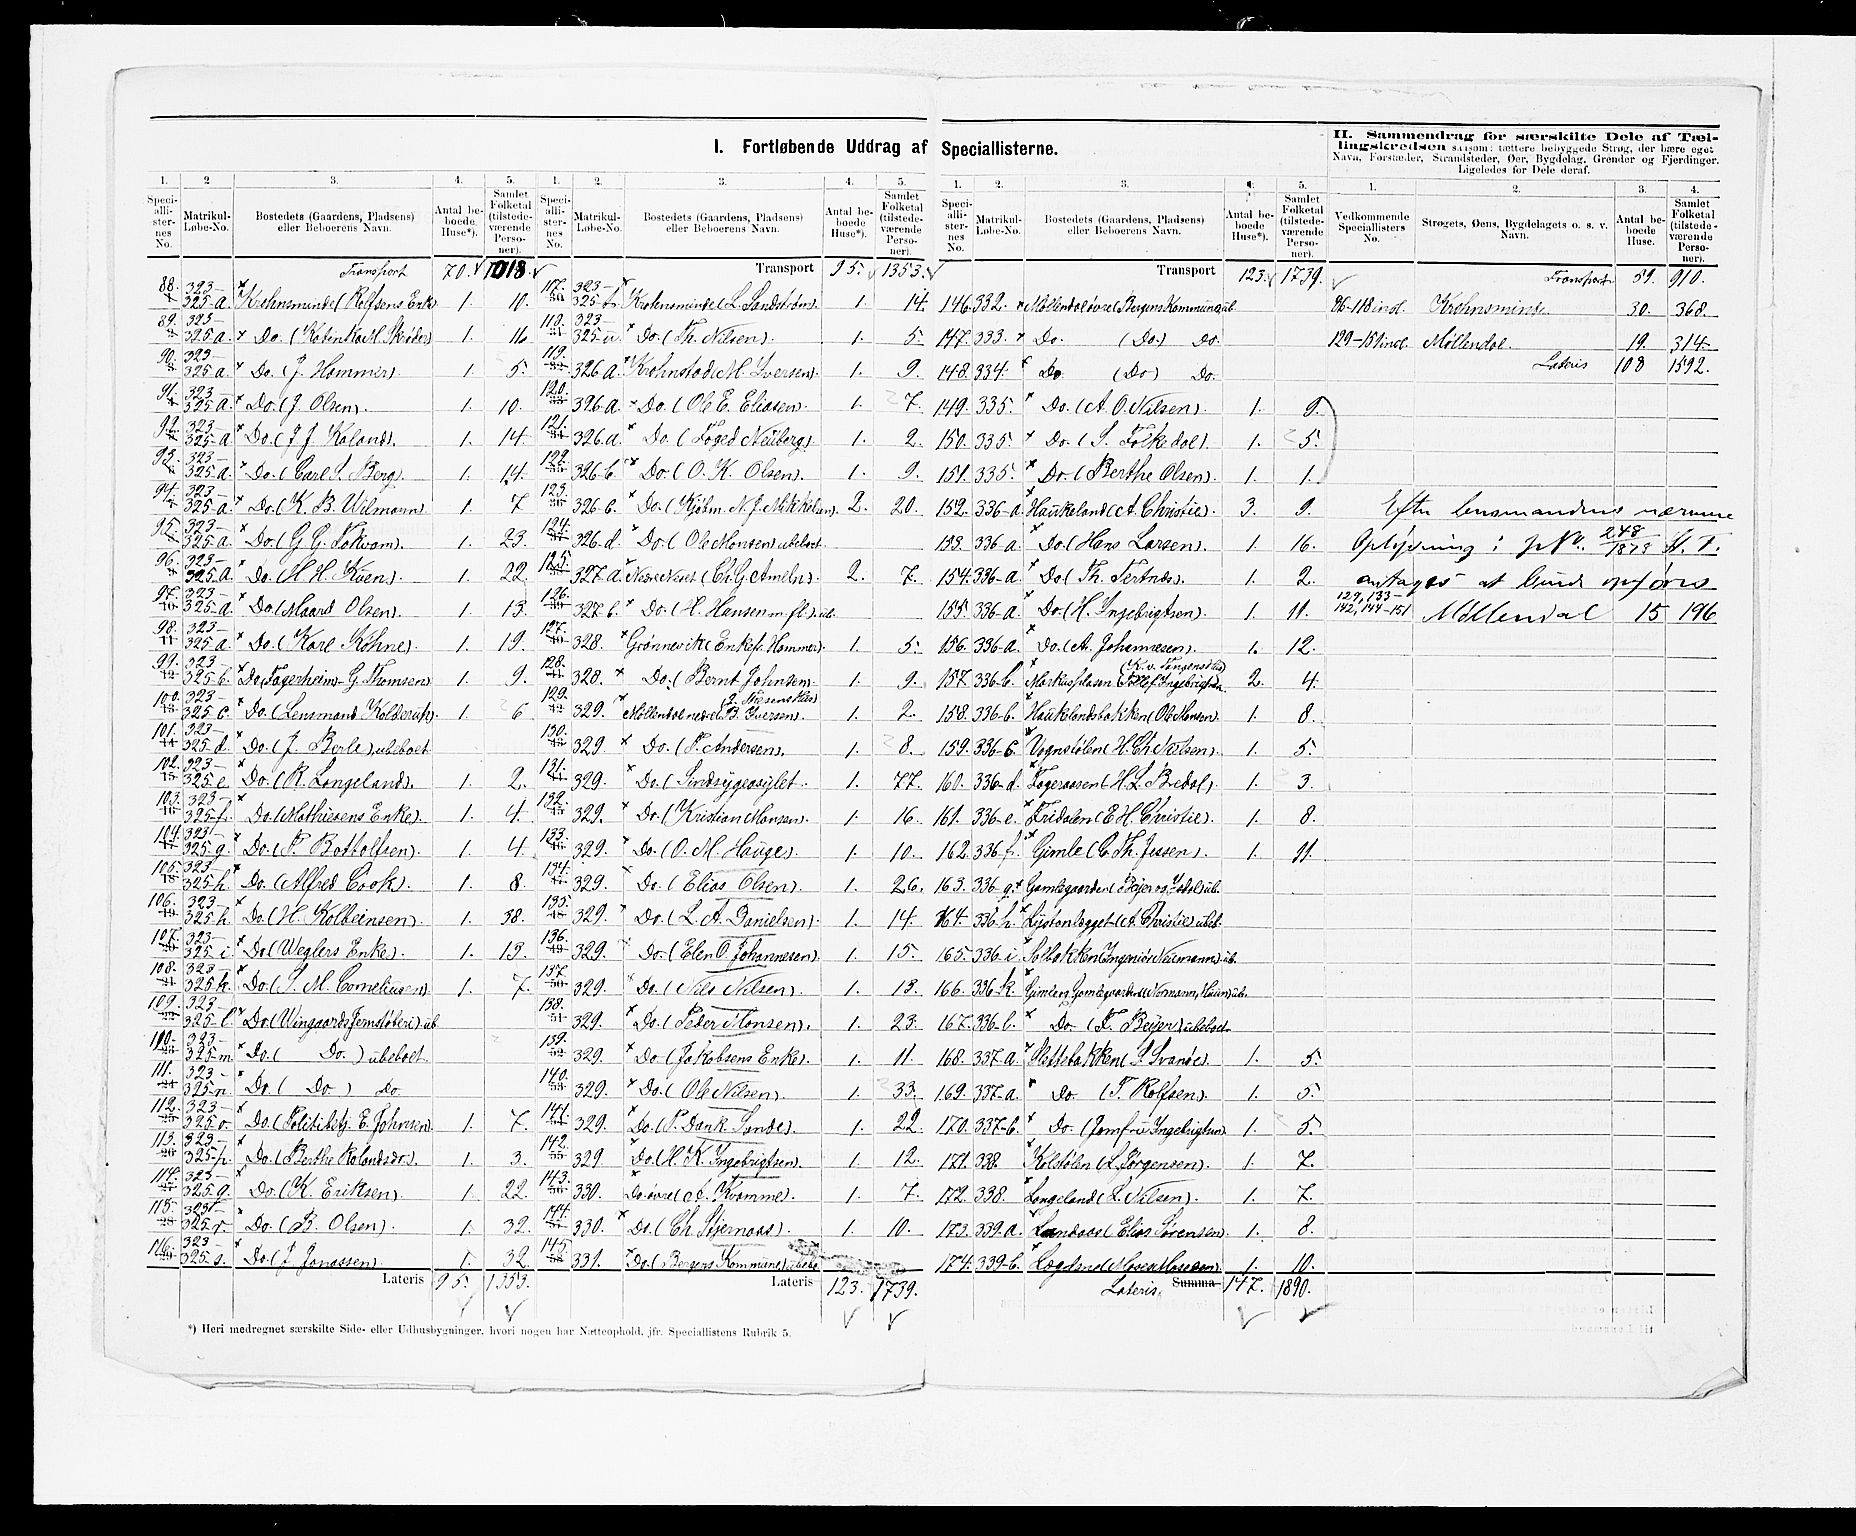 I. Fortløbende Uddrag af Speciallisterne.
II. Sammendrag for særskilte Dele af Tæl-
lingskredsen saasom: tættere bebyggede Strøg, der bære eget
Navn, Forstæder, Strandsteder, Øer, Bygdelag, Grender og Fjerdinger.
Ligeledes for Dele deraf.
1. 2 3. 4. 5.
Speciallisternes No. Matrikul-Løbe-No. Bostedets (Gaardens, Pladsens) eller Beboerens Navn. Antal beboede Huse*). Samlet Folketal (tilstedeværende Personer).
Transport 70. 1018.
88. 323-325a Krohnsminde (Rolfsens Enke) 1. 10.
89. 323-325a. Do. (Katinka M. Skrøder) 1. 16
90. 323-325a. Do. (J. Hammer) 1. 5.
91. 323-325a. Do. (J. Olsen). 1. 10.
92. 323-325a Do. (J. J. Kaland). 1. 14.
93. 323-325a. Do. (Carl S. Berg). 1. 14.
94. 323-325a. Do. (K. B. Wilmann) 1. 7
95. 323-325a. Do. (G. G. Lokvam). 1. 23.
96. 323-325a. Do. (H. H. Koen). 1. 22.
97. 323-325a. Do. (Maard Olsen) 1. 13.
98. 323-325a. Do. (Karl Köhne) 1. 19.
99. 323-325b. Do. (Fagerheim-G. Thomsen) 1. 9.
100. 323-325c. Do. (Lensmand Kolderup). 1. 6
101. 323-325d. Do. (J. Berle) ubeboet
102. 323-325e Do. (R. Langeland). 1. 2.
103. 323-325f. Do. (Mathiesens Enke). 1. 4.
104. 323-325g. Do. (P. Bottolfsen) 1. 4.
105. 323-325h. Do. (Alfred Cook). 1. 8.
106. 323-325h. Do. (H. Kolbeinsen) 1. 38.
107. 323-325i Do. (Weglers Enke). 1. 13.
108. 323-325k. Do. (S. M. Corneliusen) 1. 7.
109. 323-325l. Do. (Wingaards Jernstøberi) ub.
110. 323-325m Do. ( Do. ) ubeboet
111. 323-325n Do. ( Do. ) do
112. 323-325o. Do. (Politibetj. E. Johnsen). 1. 7.
113. 323-325p. Do. (Berthe Rolandsdr.). 1. 3.
114. 323-325q. Do. (K. Eriksen) 1. 22.
115. 323-325r. Do. (B. Olsen). 1. 32.
116. 323-325s. Do. (J. Jonassen) 1. 32
Lateris 95. 1353.
1. 2. 3. 4. 5.
Speciallisternes No. Matrikul-Løbe-No. Bostedets (Gaardens, Pladsens) eller Beboerens Navn. Antal beboede Huse*). Samlet Folketal (tilstedeværende Personer).
Transport 95. 1353.
117. 323-325t. Krohnsminde (L. Sandstrøm). 1. 14.
118. 323-325u. Do. (Th. Nilsen). 1. 5.
119. 326a. Krohnstad (M. Iversen). 1. 9.
120. 326a. Do. (Ole E. Eliasen). 1. 7.
121. 326a. Do. (Foged Neüberg). 1. 2.
122. 326b. Do. (O. K. Olsen). 1. 9.
123. 326c. Do. (Kjøbm. N. J. Mikkelsen). 2. 20.
124. 326d. Do. (Ole Monsen) ubeboet
125. 327a. Nesre Neset (Ch. G. Ameln). 2. 7.
126. 327b. Do. (H. Hansen m. fl.) ub.
127. 328. Grønnevik (Enkefr. Hammer). 1. 5.
128. 328. Do. (Bernt Johnsen). 1. 9.
129. 329. Møllendal nedre (B. Iversen). 1. 2.
130. 329 Do. (P. Andersen). 1. 8.
131. 329. Do. (Sindsygeasylet. 1. 77.
132. 329. Do. (Kristian Monsen). 1. 16.
133. 329. Do. (O. M. Hauge). 1. 10.
134. 329. Do. (Elias Olsen). 1. 26.
135. 329. Do. (L. A. Danielsen). 1. 14.
136. 329. Do. (Elen O. Johannesen). 1. 15.
137. 329. Do. (Nils Nilsen) 1. 13.
138. 329. Do. (Peder Monsen). 1. 23.
139. 329. Do. (Jakobsens Enke). 1. 11.
140. 329. Do. (Ole Nilsen). 1. 33.
141. 329. Do. (P. Dank Sande). 1. 22.
142. 329. Do. (H. K. Ingebrigtsen). 1. 12.
143. 330. Do. øvre (A. Kvamme). 1. 7.
144. 330. Do. (Ch. Stjernaas). 1. 10.
145. 331. Do. (Bergens Kommune) ubebo
Lateris 123. 1739.
1. 2. 3. 4. 5.
Speciallisternes No. Matrikul-Løbe-No. Bostedets (Gaardens, Pladsens) eller Beboerens Navn. Antal beboede Huse*). Samlet Folketal (tilstedeværende Personer).
Transport 123. 1739.
146. 332. Møllendal øvre (Bergens Kommune) ub
147. 333. Do. (Do) Do.
148. 334. Do (Do) Do.
149. 335. Do. (A. O. Nilsen). 1. 9.
150. 335. Do. (S. Folkedal). 1. 5.
151. 335. Do. (Berthe Olsen). 1. 1.
152. 336-a. Haukeland (A. Christie). 3. 9.
153. 336a. Do. (Hans Larsen). 1. 16.
154. 336-a. Do. (Th. Tertnes). 1. 2.
155. 336a. Do. (H. Ingebrigtsen) 1. 11.
156. 336-a. Do. (A. Johannesen) 1. 12.
157. 336-b. Markusplasen (Tollef Ingebrigtsen. 2. 4.
158. 336-b. Haukelandsbakken (Ole Monsen). 1. 8.
159. 336-c. Vognstølen (H. Ch. Nielsen). 1. 5.
160. 336-d. Fageraasen (H. L. Bredal). 1. 3.
161. 336-e. Fridalen (E. H. Christie). 1. 8.
162. 336f. Gimle (C. Th. Jessen). 1. 11.
163. 336-g. Gamlegaarden (Beijer og Isdal) ub.
164. 336-h. Lystanlægget (A. Christie) ubeb.
165. 336i Solbakken (Ingeniør Neumann) ub.
166. 336-k. Gimlen Gamlegaarden (Normann, Hauen) ub.
167. 336-l. Do. (F. Beijer) ubeboet
168. 337a. Slettebakken (S. Svanøe). 1. 5.
169. 337-a. Do (T. Rolfsen). 1. 5.
170. 337-b. Do. (Jomfru Ingebrigtsen) 1. 5.
171. 338. Kolstølen (L. Jørgensen). 1. 7.
172. 338. Langeland (L. Nilsen). 1. 7.
173. 339a. Landaas (Elias Sørensen) 1. 8.
174. 339-b. Lægdene (Mosen Mosessen). 1. 10.
Lateris. Summa 147. 1890.
1. 2. 3. 4.
Vedkommende Speciallisters No. Strøgets, Øens, Bygdelagets o. s. v. Navn. Antal beboede Huse. Samlet Folketal (tilstedeværende Personer).
Transport 59. 910.
86-118 incl. Krohnsminde 30. 368.
129-151 incl. Møllendal. 19. 314.
Lateris 108 1592.
Efter lensmandens nærmere
Oplysning i jNo. 248/1878 St. T.
antages at burde opføres
129, 133-142, 144-151 Møllendal 15 196
*) Heri medregnet særskilte Side- eller Udhusbygninger, hvori nogen har Natteophold, jfr. Speciallistens Rubrik 5.